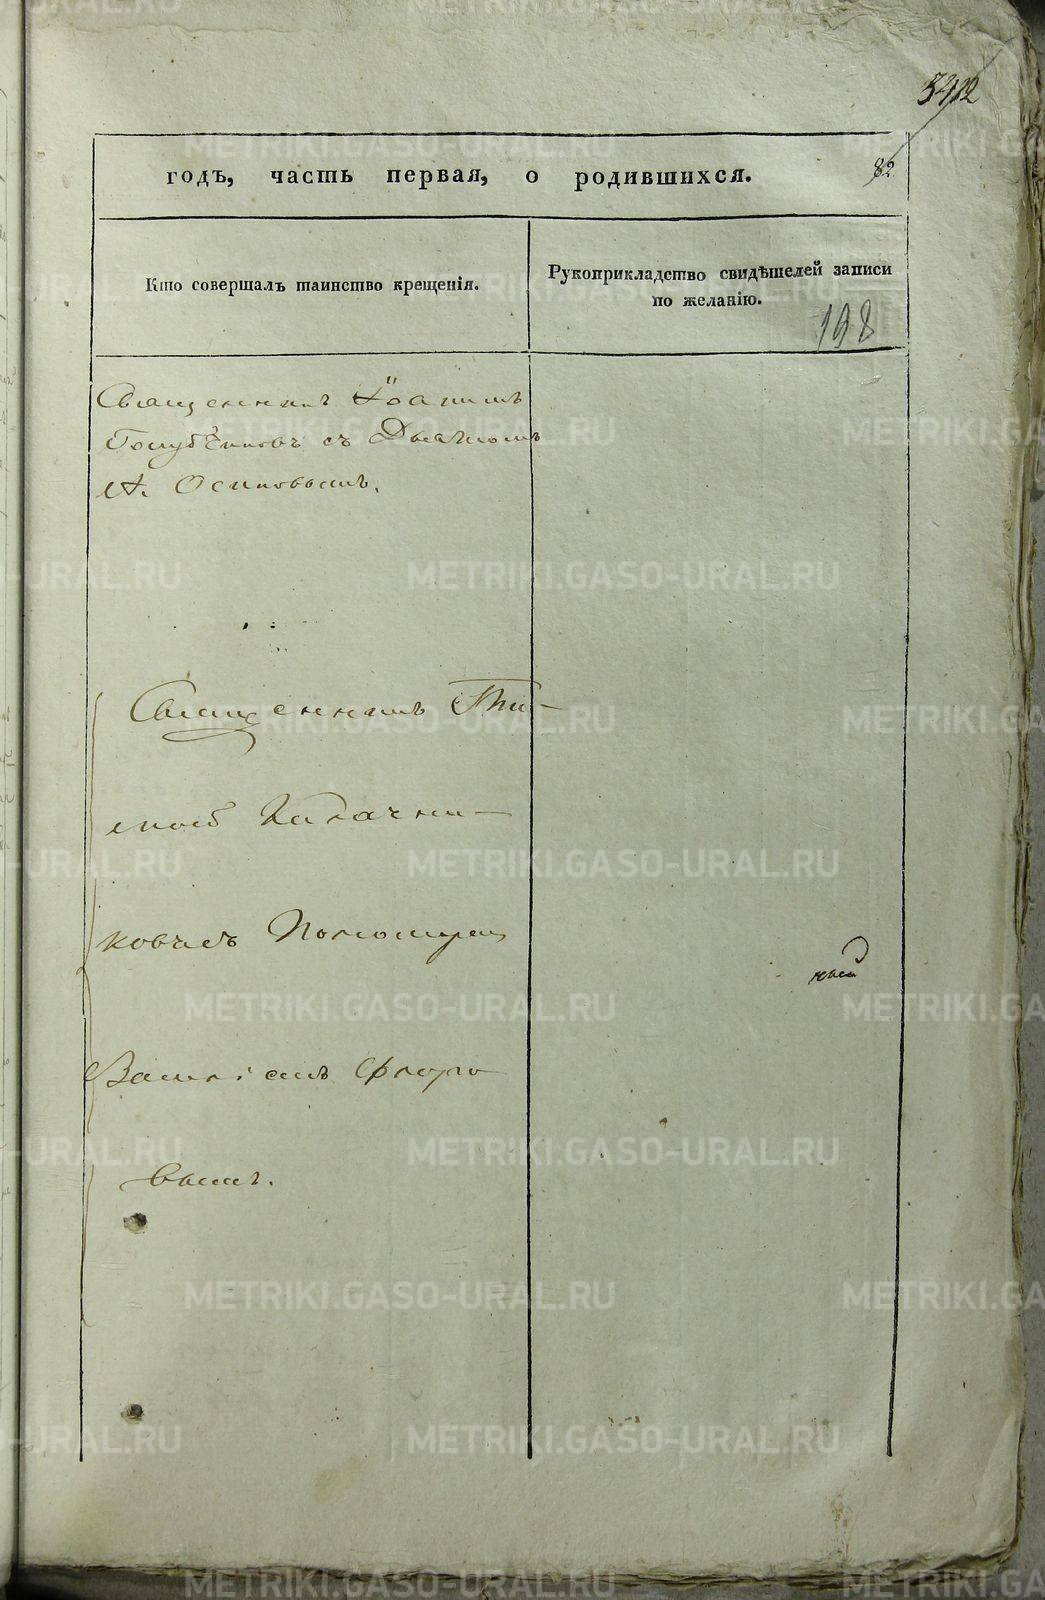 82
годъ, часть первая, о родившихся.
Кто совершалъ таинство крещенія.
Рукоприкладство свидѣтелей записи
по желанію.
198
Священникъ Іоаннъ
Голубчиковъ съ Дьячкомъ
А. Осиповымъ.
Священникъ Ти-
моѳ Калачни-
ковымъ Пономарем
Василіемъ Флоро-
вымъ.
METRIKI.GASO-URAL.RU